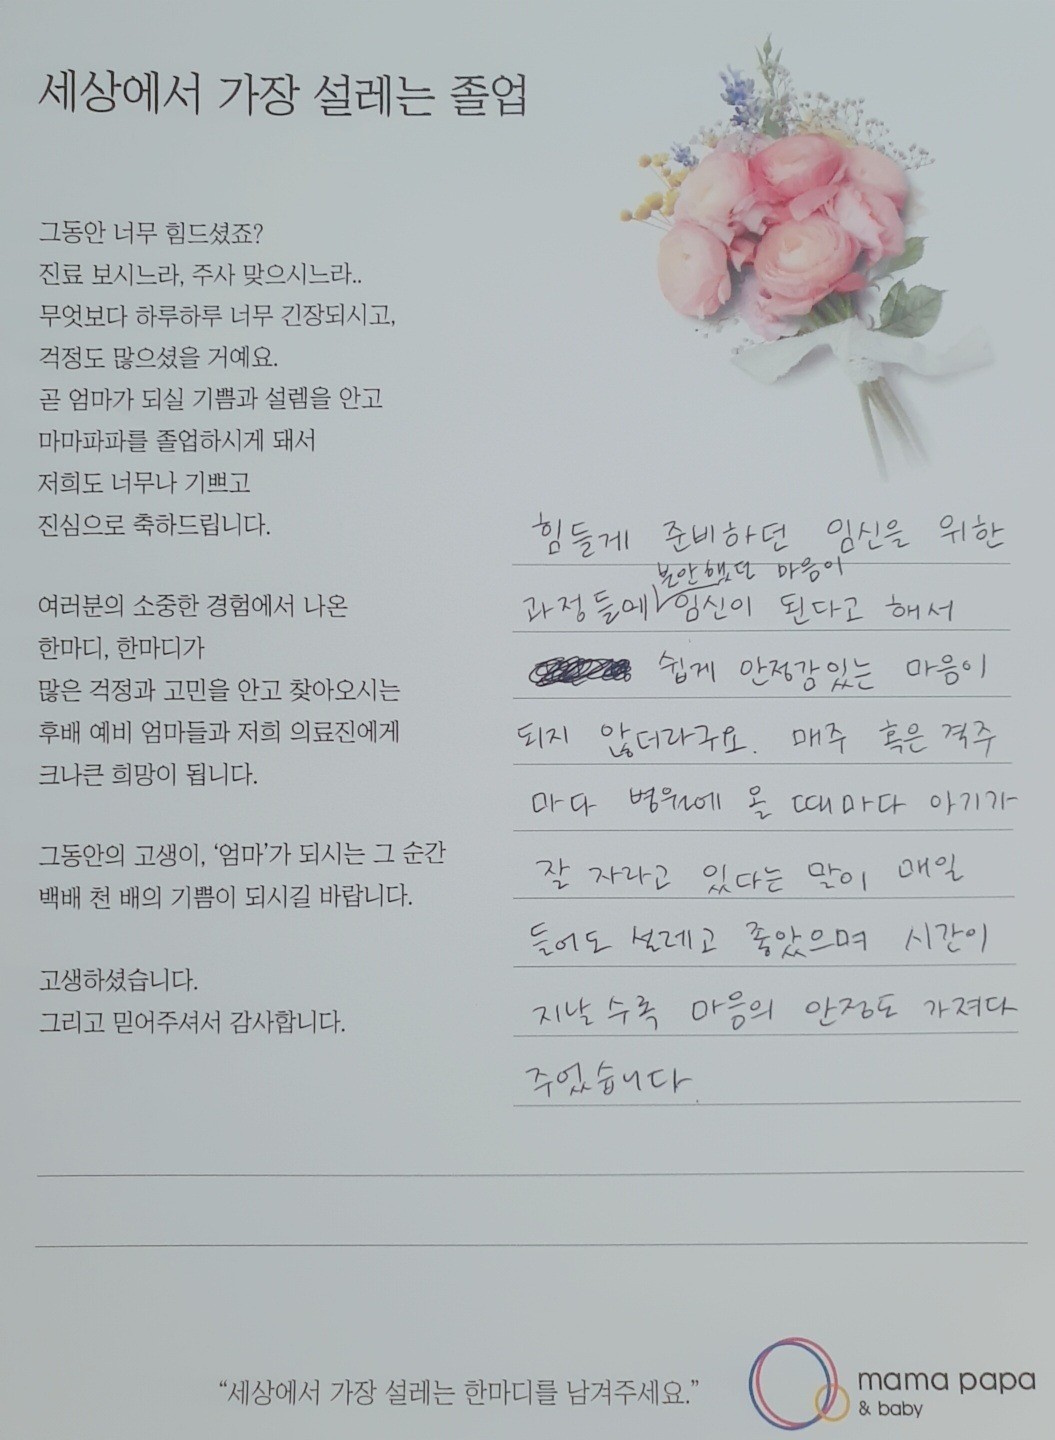 세상에서 가장 설레는 졸업
그동안 너무 힘드셨죠?
진료 보시느라, 주사 맞으시느라..
무엇보다 하루하루 너무 긴장되시고,
걱정도 많으셨을 거예요.
곧 엄마가 되실 기쁨과 설렘을 안고
마마파파를 졸업하시게 돼서
저희도 너무나 기쁘고
진심으로 축하드립니다.
여러분의 소중한 경험에서 나온
한마디, 한마디가
많은 걱정과 고민을 안고 찾아오시는
후배 예비 엄마들과 저희 의료진에게
크나큰 희망이 됩니다.
그동안의 고생이, ‘엄마’가 되시는 그 순간
백배 천 배의 기쁨이 되시길 바랍니다.
고생하셨습니다.
그리고 믿어주셔서 감사합니다.
힘들게 준비하던 임신을 위한
불안했던 마음이
과정들에 임신이 된다고 해서
쉽게 안정감있는 마음이
되지 않더라구요. 매주 혹은 격주
마다 병원에 올 때마다 아기가
잘 자라고 있다는 말이 매일
들어도 설레고 좋았으며 시간이
지날수록 마음의 안정도 가져다
주었습니다.
“세상에서 가장 설레는 한마디를 남겨주세요.”
mama papa
& baby